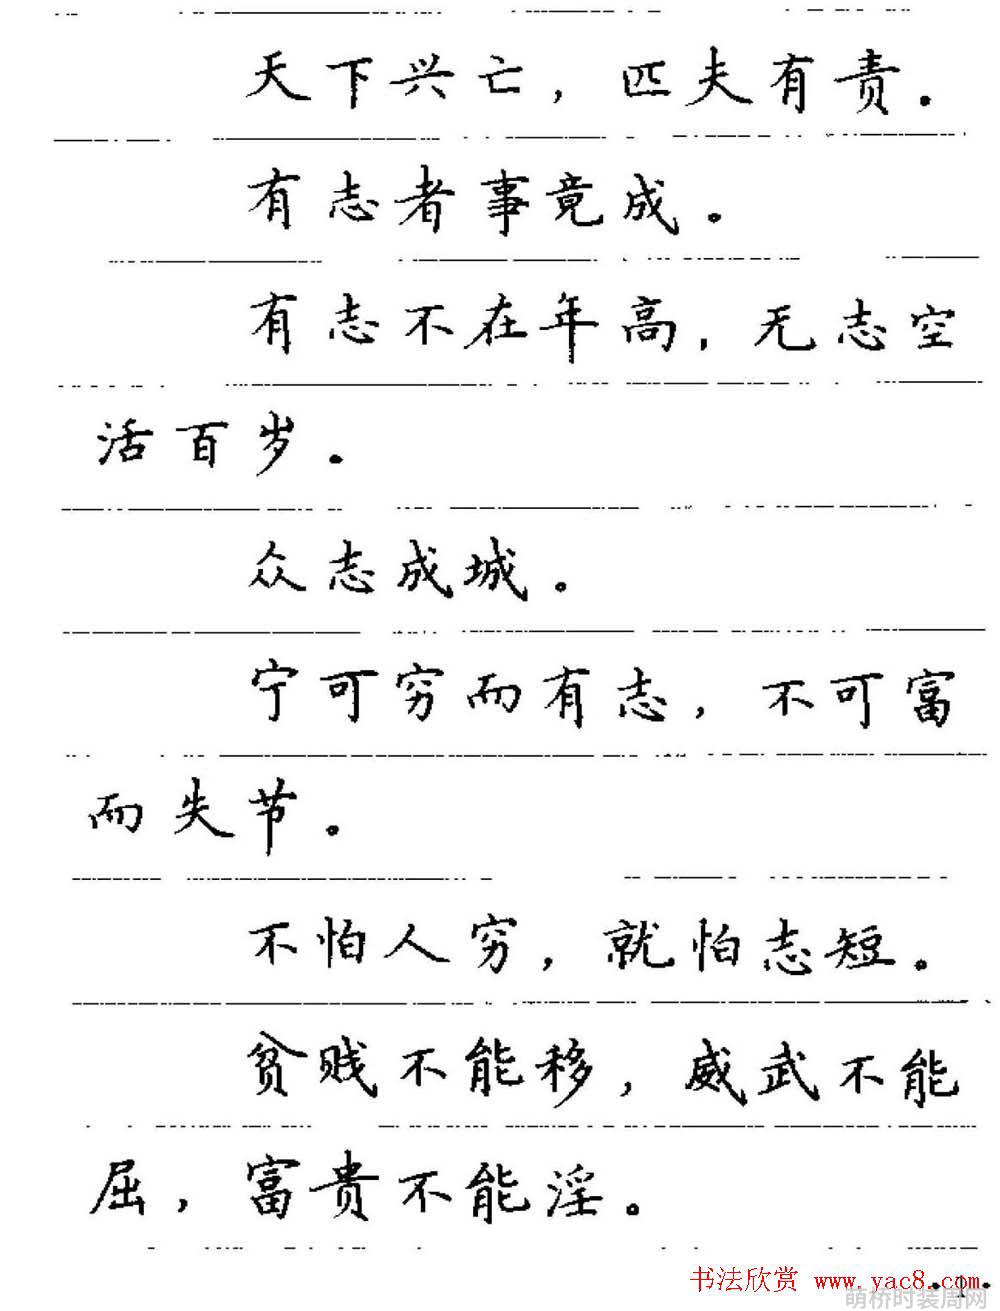 天下兴亡，匹夫有责.
有志者事竟成。
有志不在年高，无志空
活百岁.
众志成城。
宁可穷而有志，不可富
而失节。
不怕人穷，就怕志短。
贫贱不能移，威武不能
屈，富贵不能淫。
书法欣赏 www.yac8.com
·1·
萌桥时装周网